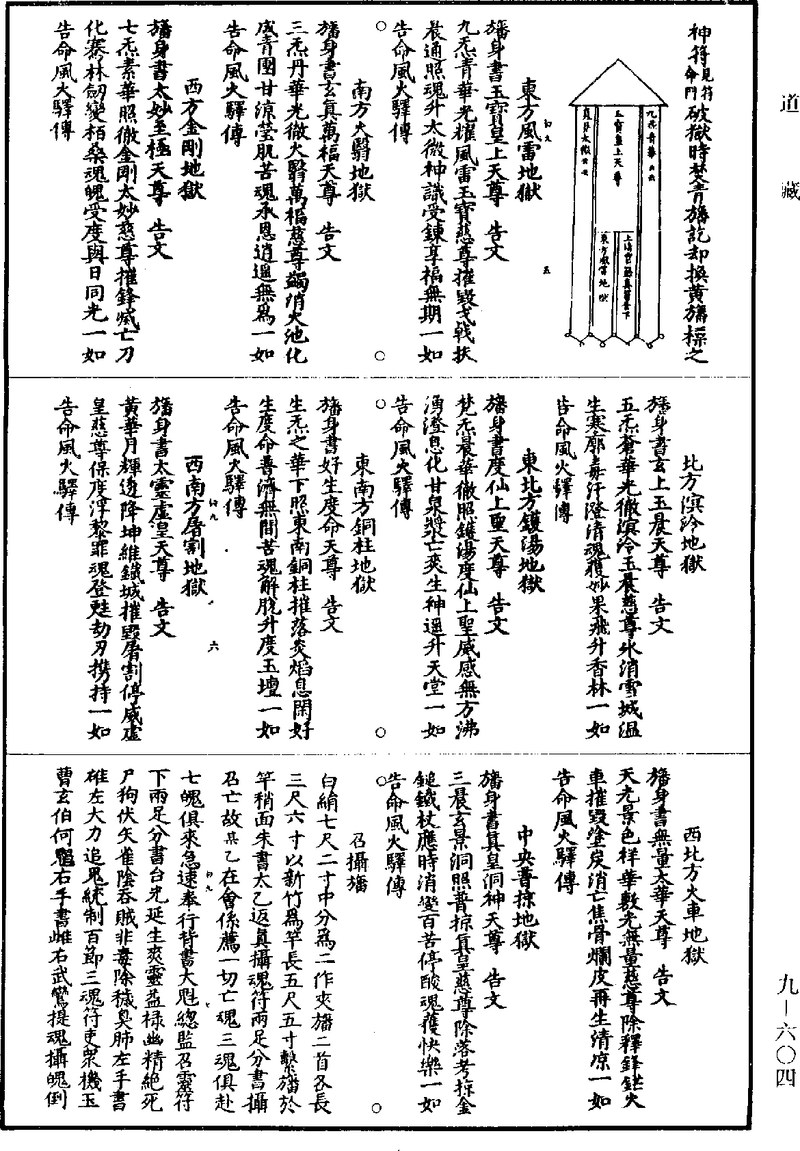 道藏
神符見符命門破獄時焚青旛訖却換黃旛標之
九炁青華
玉寶皇上天尊
東方風雷地獄
東方風雷地獄
旛身書玉寶皇上天尊　告文
九炁青華光耀風雷玉寶慈尊摧毀戈戟扶
晨通照魂升太微神識受鍊享福無期一如
告命風火驛傳
南方火翳地獄
旛身書玄真萬福天尊　告文
三炁丹華光徹火翳萬福慈尊蠲消火池化
成青團甘涼瑩肌苦魂承恩逍遥無爲一如
告命風火驛傳
西方金剛地獄
旛身書太妙至極天尊　告文
七炁素華照徹金剛太妙慈尊摧鋒滅亡刀
化騫林劒變栢桑魂魄受度與日同光一如
告命風火驛傳
北方溟泠地獄
旛身書玄上玉晨天尊　告文
五炁蒼華光徹溟泠玉晨慈尊氷消雪城温
生寒廓毒汗澄清魂獲妙果飛升香林一如
告命風火驛傳
東北方鑊湯地獄
旛身書度仙上聖天尊　告文
梵炁晨華徹照鑊湯度仙上聖威感無方沸
湧澄息化甘泉漿亡爽生神遥升天堂一如
告命風火驛傳
東南方銅柱地獄
旛身書好生度命天尊　告文
生炁之華下照東南銅柱摧落炎焰息閑好
生度命普濟無間苦魂解脫升度玉壇一如
告命風火驛傳
西南方屠割地獄
旛身書太靈虛皇天尊　告文
黃華月輝逺降坤維鐵城摧毀屠割停威虛
皇慈尊保度浮黎罪魂登甦劫刃携持一如
告命風火驛傳
六
西北方火車地獄
旛身書無量太華天尊　告文
天光景色祥華敷光無量慈尊除釋鋒鋩火
車摧毀塗炭消亡焦骨爛皮再生清凉一如
告命風火驛傳
中央普掠地獄
旛身書真皇洞神天尊　告文
三晨玄景洞照普掠真皇慈尊除落考掠金
鎚鐵杖應時消變百苦停酸魂獲快樂一如
告命風火驛傳
召攝旛
白絹七尺二寸中分爲二作夾旛二首各長
三尺六寸以新竹爲竿長五尺五寸繫旛於
竿稍面朱書太乙返真攝魂符兩足分書攝
召亡故某乙在會係薦一切亡魂三魂俱赴
七魄俱來急速奉行背書大魁總監召靈符
下兩足分書台光延生爽靈益禄幽精絕死
尸狗伏矢雀陰吞賊非毒除穢臭肺左手書
雄左大力追鬼統制百節三魂符吏衆機玉
曹玄伯何右手書雌右武鸞提魂攝魄倒
九—六〇四